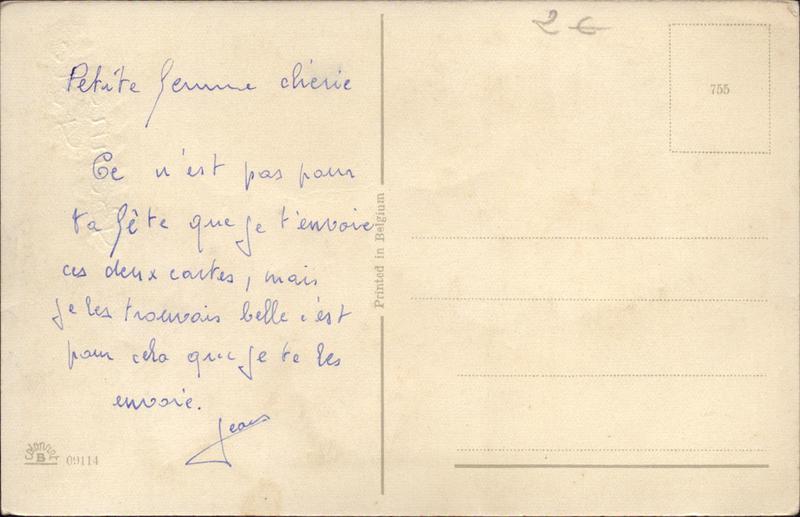 2 €
755
Petite femme chérie
Ce n'est pas pour
ta fête que je t'envoie
ces deux cartes, mais
je les trouvais belle c'est
pour cela que je te les
envoie.
Jean
Printed in Belgium
Colorprint
B 09114